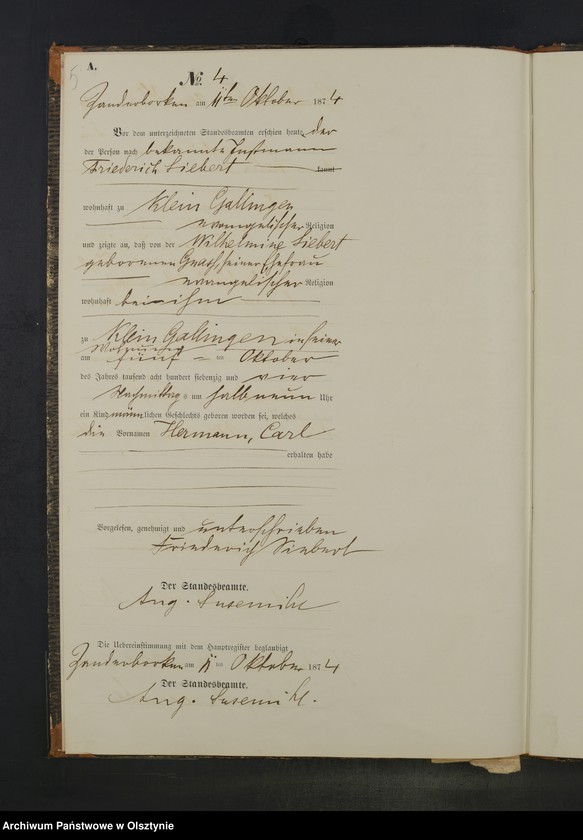 5
A.
№ 4
Zanderborken am 11ten Oktober 1874
Vor dem unterzeichneten Standesbeamten erschien heute, der
der Person nach bekannte Instmann
Friederich Siebert
kannt
wohnhaft zu Klein Gallingen
evangelischer Religion
und zeigte an, daß von der Wilhelmine Siebert
geborenen seiner Ehefrau
evangelischer Religion
wohnhaft bei ihm
zu Klein Gallingen in seiner
Wohnung
am fünf ten Oktober
des Jahres tausend acht hundert siebenzig und vier
Nachmittags um halb neun Uhr
ein Kind männlichen Geschlechts geboren worden sei, welches
die Vornamen Hermann, Carl
erhalten habe
Vorgelesen, genehmigt und unterschrieben
Friederich Siebert
Der Standesbeamte.
Aug. Susemihl
Die Uebereinstimmung mit dem Hauptregister beglaubigt
Zanderborken am 11 ten Oktober 1874
Der Standesbeamte.
Aug. Susemihl.
Archiwum Państwowe w Olsztynie